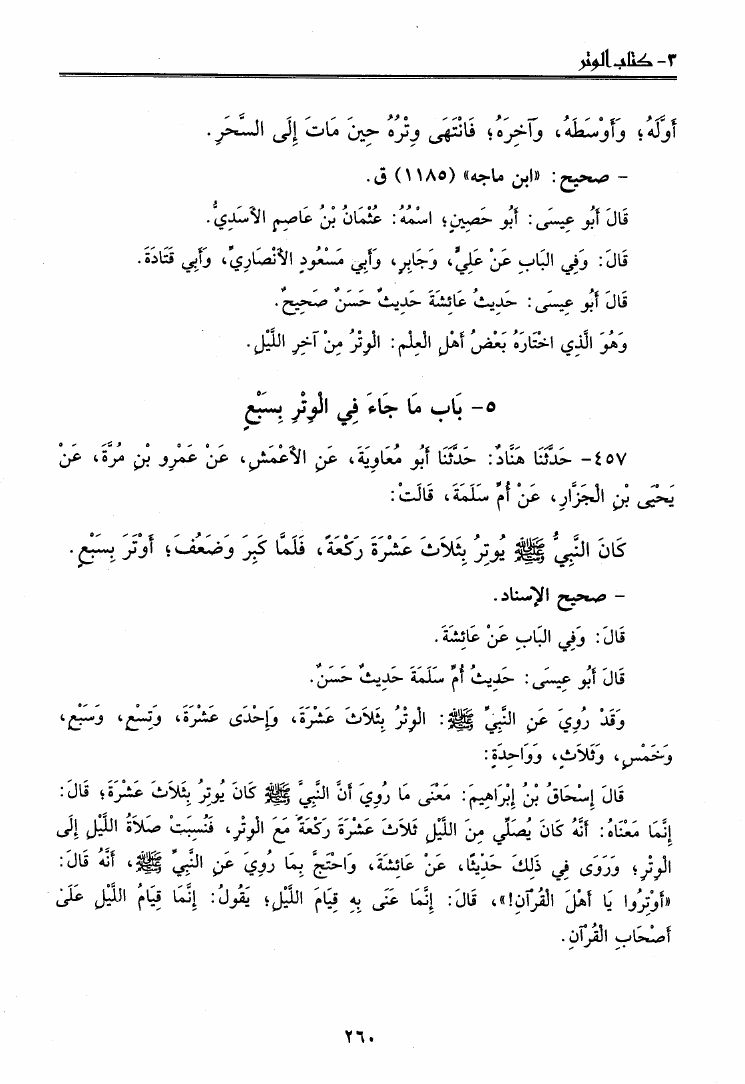 ٣- كتاب الوتر
أَوَّلَهُ؛ وَأَوْسَطَهُ، وآخِرَهُ؛ فَانْتَهَى وِتْرُهُ حِينَ مَاتَ إِلَى السَّحَرِ.
- صحيح: «ابن ماجه» (١١٨٥) ق.
قَالَ أَبُو عِيسَى: أَبُو حَصِينٍ؛ اسْمُهُ: عُثْمَانُ بْنُ عَاصِمٍ الأَسَدِيُّ.
قَالَ: وَفِي البَابِ عَنْ عَلِيٍّ، وَجَابِرٍ، وَأَبِي مَسْعُودٍ الأَنْصَارِيِّ، وَأَبِي قَتَادَةَ.
قَالَ أَبُو عِيسَى: حَدِيثُ عَائِشَةَ حَدِيثٌ حَسَنٌ صَحِيحٌ.
وَهُوَ الَّذِي اخْتَارَهُ بَعْضُ أَهْلِ الْعِلْمِ: الْوِتْرُ مِنْ آخِرِ اللَّيْلِ.
٥- بَاب مَا جَاءَ فِي الْوِتْرِ بِسَبْعٍ
٤٥٧- حَدَّثَنَا هَنَّادٌ: حَدَّثَنَا أَبُو مُعَاوِيَةَ، عَنِ الأَعْمَشِ، عَنْ عَمْرِو بْنِ مُرَّةَ، عَنْ
يَحْيَى بْنِ الْجَزَّارِ، عَنْ أُمِّ سَلَمَةَ، قَالَتْ:
كَانَ النَّبِيُّ ﷺ يُوتِرُ بِثَلاَثَ عَشْرَةَ رَكْعَةً، فَلَمَّا كَبِرَ وَضَعُفَ؛ أَوْتَرَ بِسَبْعٍ.
- صحيح الإسناد.
قَالَ: وَفِي البَابِ عَنْ عَائِشَةَ.
قَالَ أَبُو عِيسَى: حَدِيثُ أُمِّ سَلَمَةَ حَدِيثٌ حَسَنٌ.
وَقَدْ رُوِيَ عَنِ النَّبِيِّ ﷺ: الْوِتْرُ بِثَلاَثَ عَشْرَةَ، وَإِحْدَى عَشْرَةَ، وَتِسْعٍ، وَسَبْعٍ،
وَخَمْسٍ، وَثَلاَثٍ، وَوَاحِدَةٍ:
قَالَ إِسْحَاقُ بْنُ إِبْرَاهِيمَ: مَعْنَى مَا رُوِيَ أَنَّ النَّبِيَّ ﷺ كَانَ يُوتِرُ بِثَلاَثَ عَشْرَةَ؛ قَالَ:
إِنَّمَا مَعْنَاهُ: أَنَّهُ كَانَ يُصَلِّي مِنَ اللَّيْلِ ثَلاَثَ عَشْرَةَ رَكْعَةً مَعَ الْوِتْرِ، فَنُسِبَتْ صَلاَةُ اللَّيْلِ إِلَى
الْوِتْرِ؛ وَرَوَى فِي ذَلِكَ حَدِيثًا، عَنْ عَائِشَةَ، وَاحْتَجَّ بِمَا رُوِيَ عَنِ النَّبِيِّ ﷺ، أَنَّهُ قَالَ:
«أَوْتِرُوا يَا أَهْلَ الْقُرْآنِ!»، قَالَ: إِنَّمَا عَنَى بِهِ قِيَامَ اللَّيْلِ؛ يَقُولُ: إِنَّمَا قِيَامُ اللَّيْلِ عَلَى
أَصْحَابِ الْقُرْآنِ.
٢٦٠